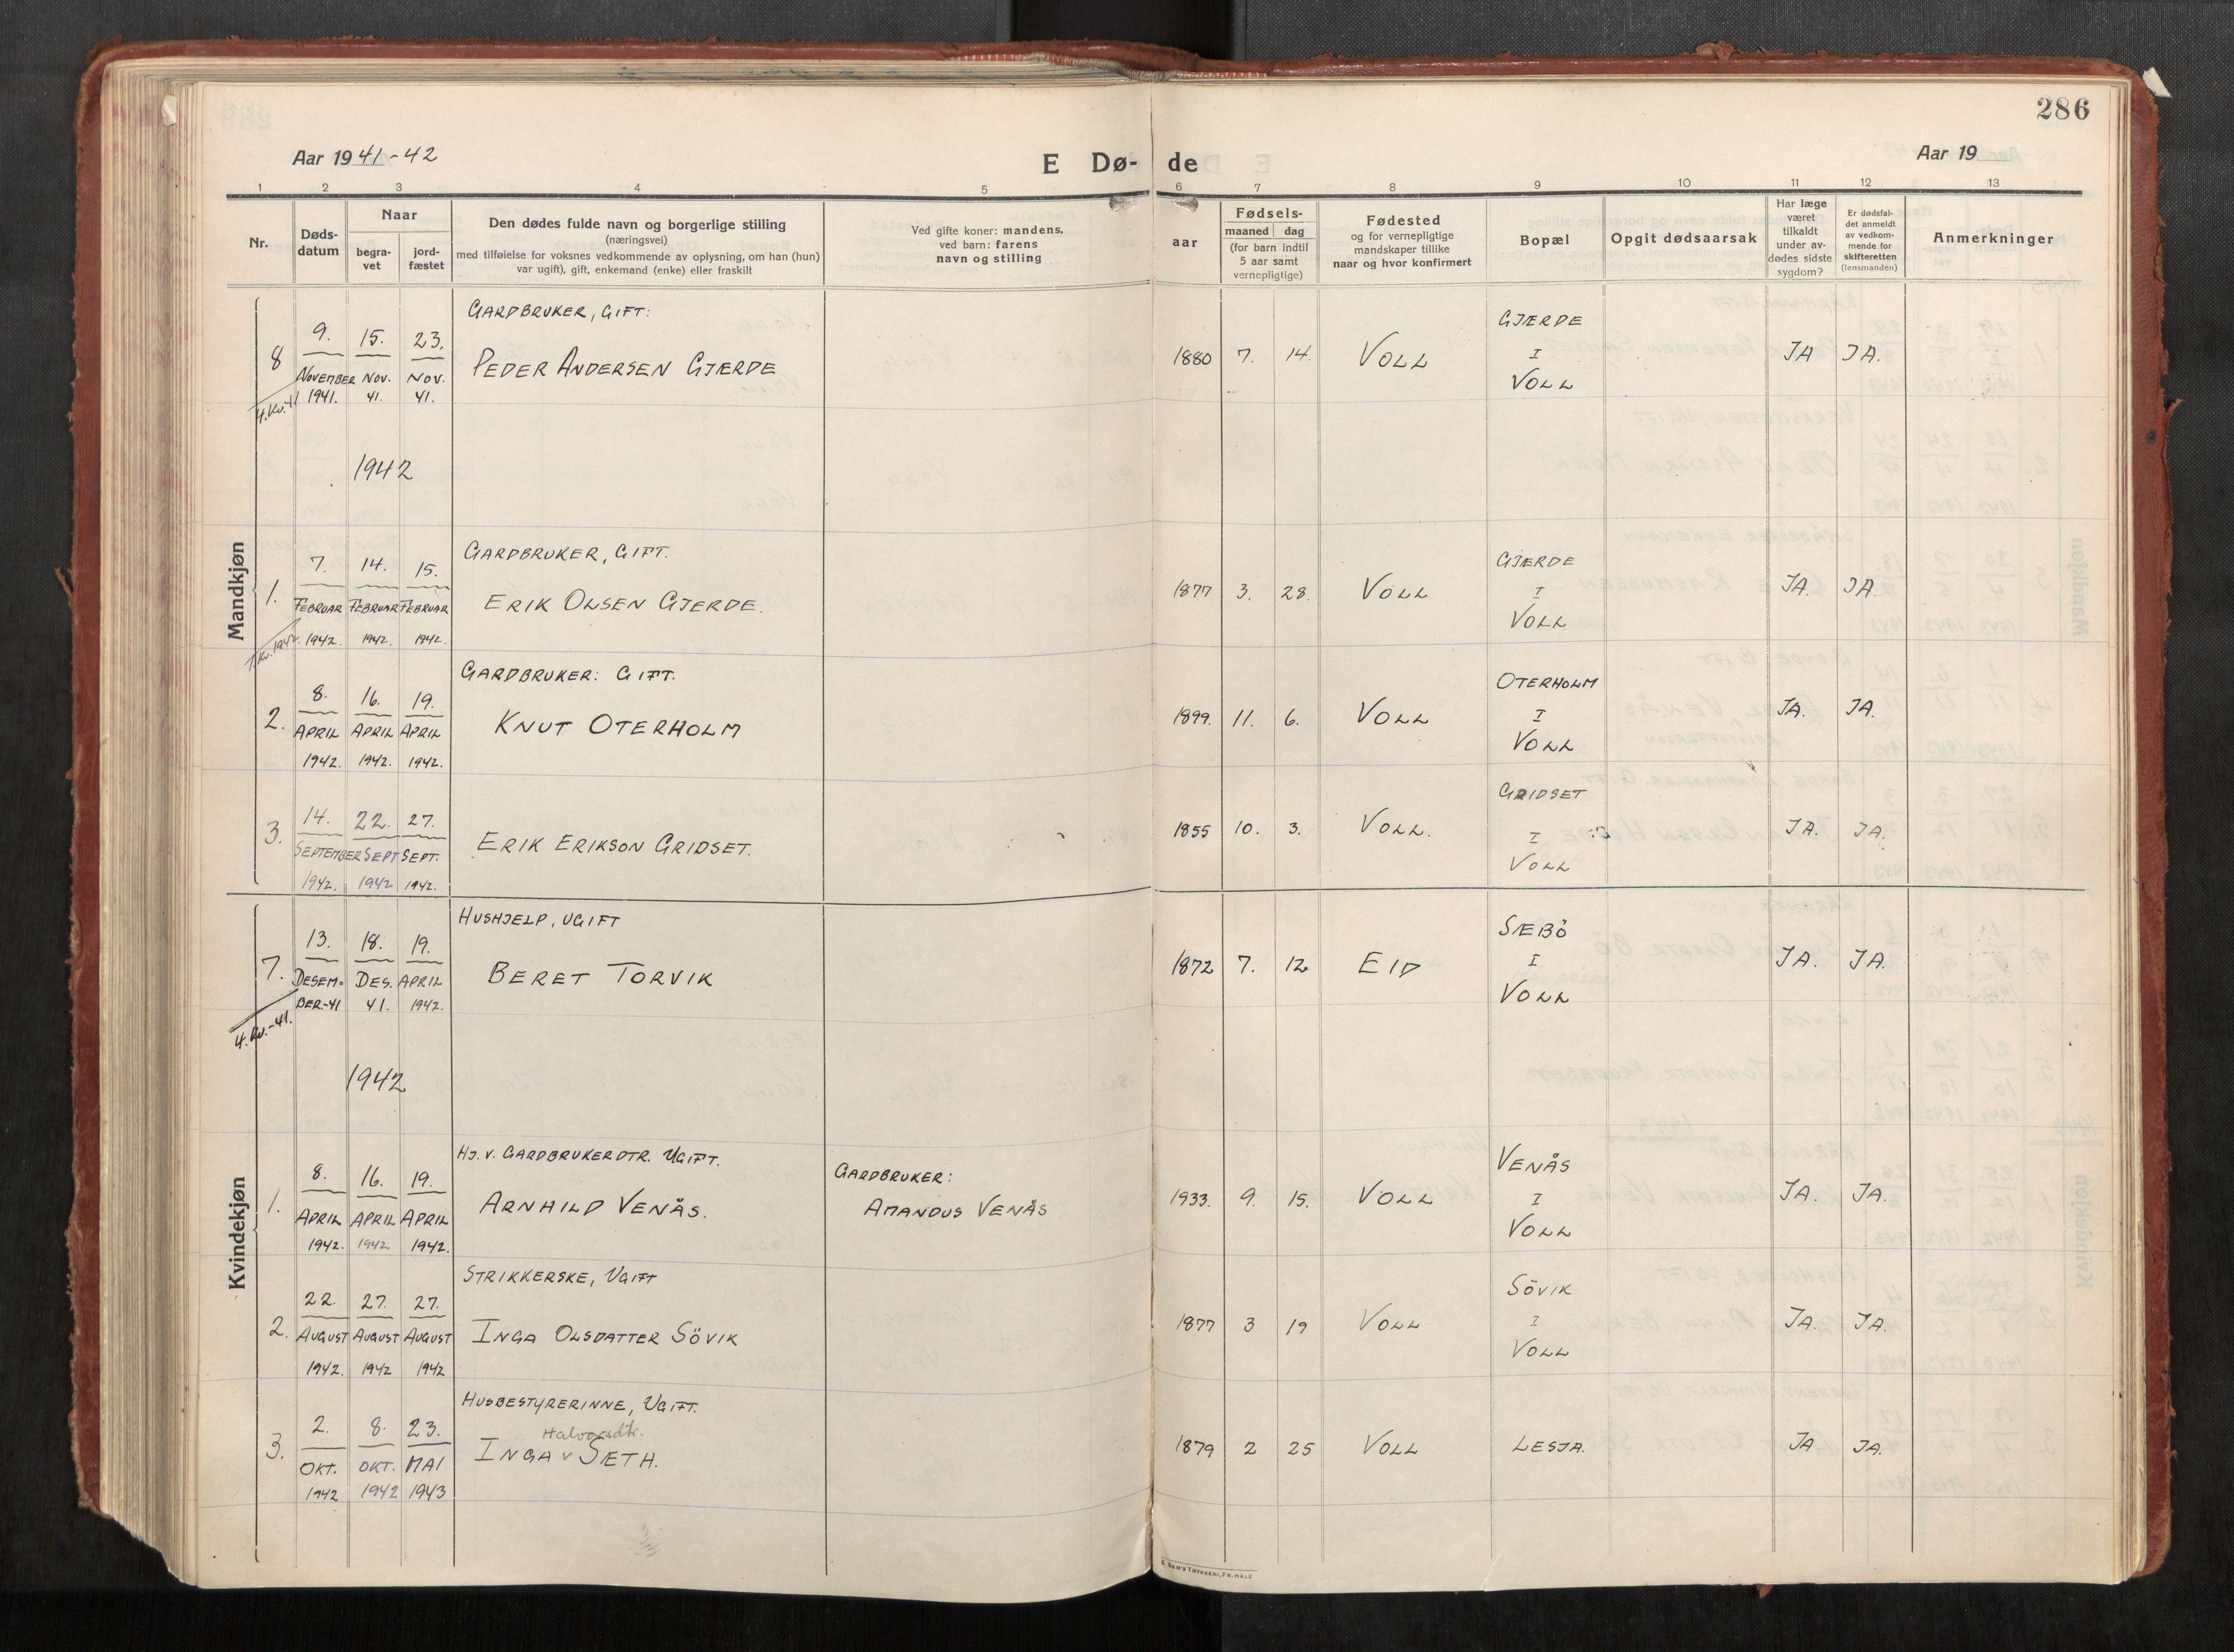 286
Aar 1941-42
E Dø-de
Aar 19
1 2 3 4 5 6 7 8 9 10 11 12 13
Nr.
Døds-
datum
Naar
begra-
vet
jord-
fæstet
Den dødes fulde navn og borgerlige stilling
(næringsvei)
med tilføielse for voksnes vedkommende av oplysning, om han (hun)
var ugift), gift, enkemand (enke) eller fraskilt
Ved gifte koner: mandens,
ved barn: farens
navn og stilling
Fødsels-
aar
maaned dag
(for barn indtil
5 aar samt
vernepligtige)
Fødested
og for vernepligtige
mandskaper tillike
naar og hvor konfirmert
Bopæl
Opgit dødsaarsak
Har læge
været
tilkaldt
under av-
dødes sidste
sygdom?
Er dødsfal-
det anmeldt
av vedkom-
mende for
skifteretten
(lensmanden)
Anmerkninger
Mandkjøn
GARDBRUKER, GIFT:
GJÆRDE
8 9. 15. 23. PEDER ANDERSEN GJÆRDE 1880 7. 14. VOLL I JA JA.
NOVEMBER NOV. NOV. VOLL
4.Kv.41 1941. 41. 41.
1942
GARDBRUKER, GIFT.
GJÆRDE
1. 7. 14. 15. ERIK OLSEN GJERDE. 1877 3. 28. VOLL I JA. JA.
FEBRUAR FEBRUAR FEBRUAR VOLL
1.Kv.1942. 1942. 1942. 1942.
GARDBRUKER: GIFT.
OTERHOLM
2. 8. 16. 19. KNUT OTERHOLM 1899. 11. 6. VOLL I JA. JA.
APRIL APRIL APRIL VOLL
1942. 1942. 1942.
GRIDSET
3. 14. 22. 27. ERIK ERIKSON GRIDSET. 1855 10. 3. VOLL. I JA. JA.
SEPTEMBER SEPT SEPT. VOLL
1942. 1942 1942.
Kvindekjøn
HUSHJELP, UGIFT
SÆBÖ
7. 13. 18. 19. BERET TORVIK 1872 7. 12 EID I JA. JA.
DESEM- DES. APRIL VOLL
BER-41 41. 1942.
4.Kv.-41.
1942
HJ. V. GARDBRUKERDTR. UGIFT. GARDBRUKER:
VENÅS
1. 8. 16. 19. ARNHILD VENÅS. AMANDUS VENÅS 1933. 9. 15. VOLL I JA. JA.
APRIL APRIL APRIL VOLL
1942. 1942 1942.
STRIKKERSKE, UGIFT
SÖVIK
2. 22. 27. 27. INGA OLSDATTER SÖVIK 1877 3 19 VOLL I JA. JA.
AUGUST AUGUST AUGUST VOLL
1942. 1942 1942
HUSBESTYRERINNE, UGIFT.
Halvorsdtr.
3. 2. 8. 23. INGA v SÆTH. 1879 2 25 VOLL LESJA. JA JA.
OKT. OKT. MAI
1942 1942 1943